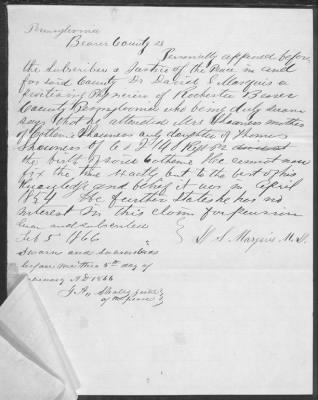 Pennsylvania
Beaver County ss
Personally appeared before
the subscriber a Justice of the Peace in and
for said County Dr David S Marquis a
Practising Physician of Rochester Beaver
County Pennsylvania who being duly sworn
says that he attended Mrs Shawness mother
of Catherine Shawness only daughter of Thomas
Shawness of Co I 140 Regt on
the birth of said Catherine He cannot now
fix the time exactly but to the best of his
knowledge and belief it was in April
1854 He further states he has no
interest in this claim for pension
Sworn and subscribed
Feb 5 1866
D S Marquis M.D.
Sworn and subscribed
before me this 5th day of
February AD 1866
Justice
of the peace